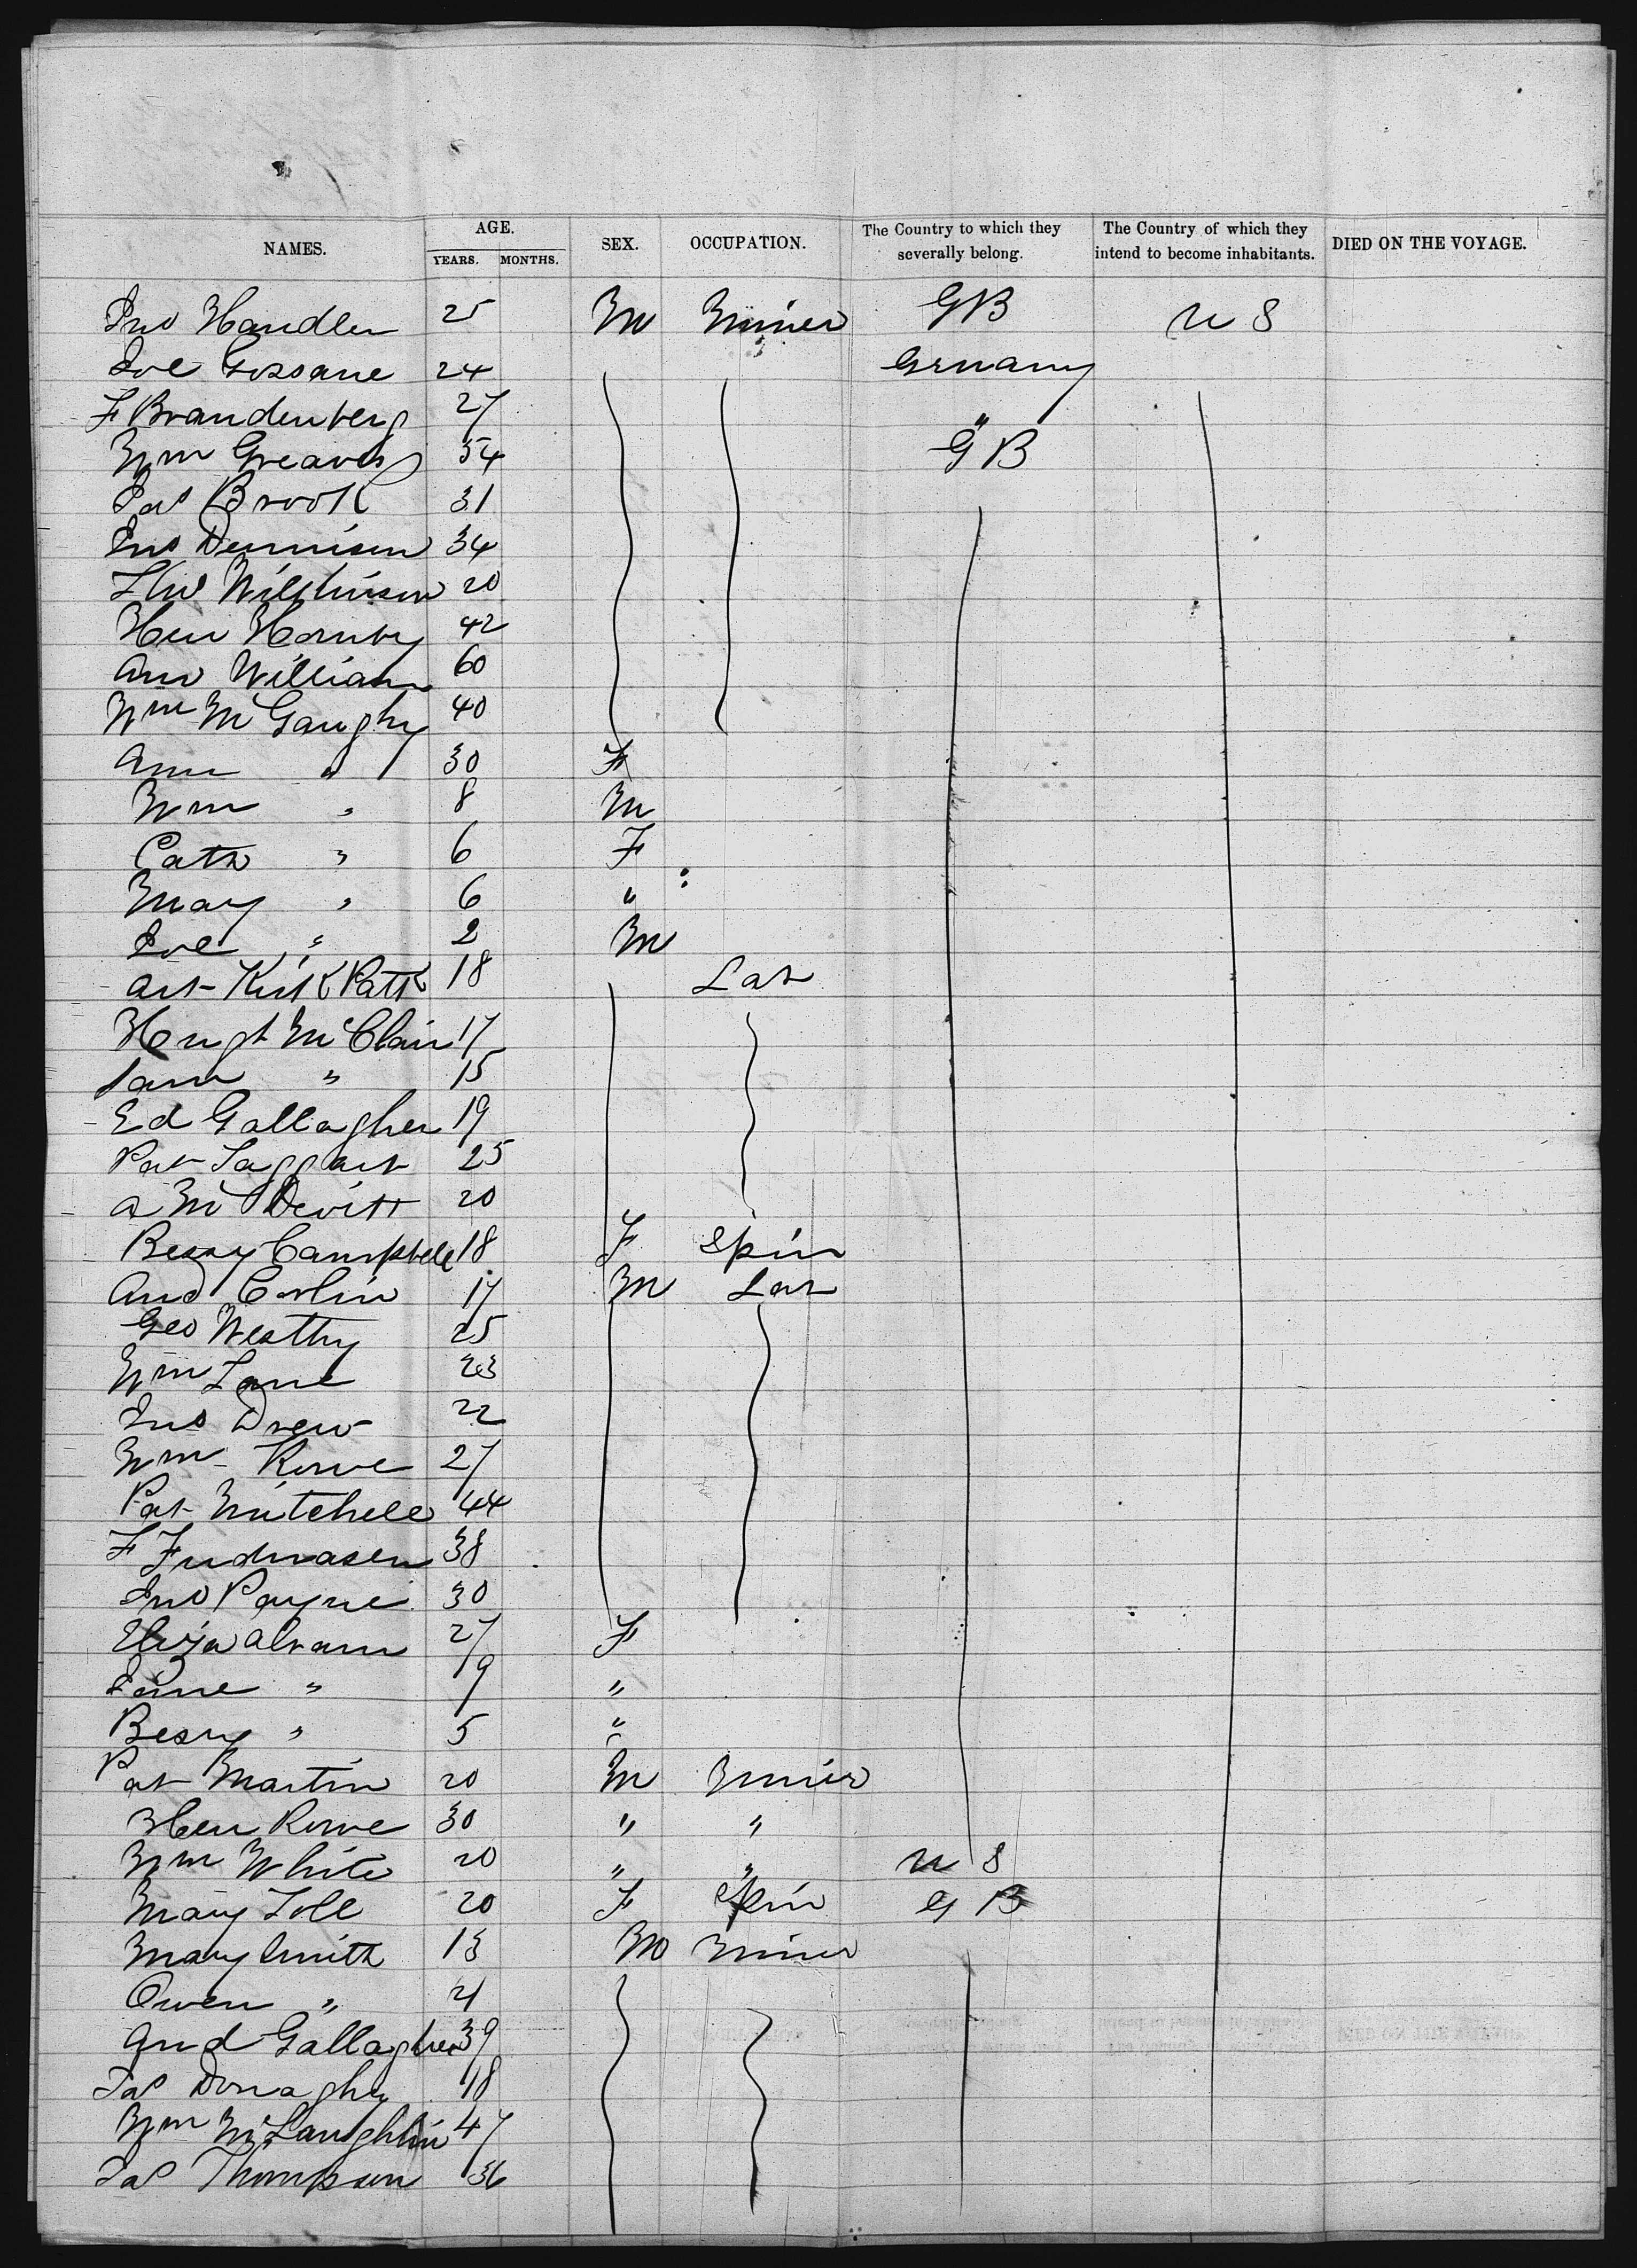 NAMES. AGE. SEX. OCCUPATION. The Country to which they severally belong. The Country of which they intend to become inhabitants. DIED ON THE VOYAGE.
YEARS. MONTHS.
Jno Handler 25 M Miner GB U S
Joe Gossane 24 Germany
F Brandenberg 27 "
Wm Greaves 54 G B
Jas Brook 31
Jno Dennison 34
Wilkinson 20
Hen Hornby 42
And William 60
Wm McGaughy 40
Ann " 30 F
Wm " 8 M
Cath " 6 F
Mary " 6 "
Joe " 2 M
Art KirkPatk 18 Lab
Hugh McClain 17
Sam " 15
Ed Gallagher 19
Pat Taggart 25
A McDevitt 20
Bessy Campbell 18 F Spin
And Carlin 17 M Lab
Geo Westby 25
Wm Lane 23
Jno Drew 22
Wm Rowe 27
Pat Mitchell 44
F 38
Jno Payne 30
Eliza Abram 27 F
Jane " 9 "
Bessy " 5 "
Pat Martin 20 M Miner
Hen Rowe 30 " "
Wm White 20 " " U S
Mary Toll 20 F Spin G B
Mary Smith 13 M Miner
Owen " 21
And Gallagher 39
Jas Donaghy 18
Wm McLaughlin 47
Jas Thompson 36